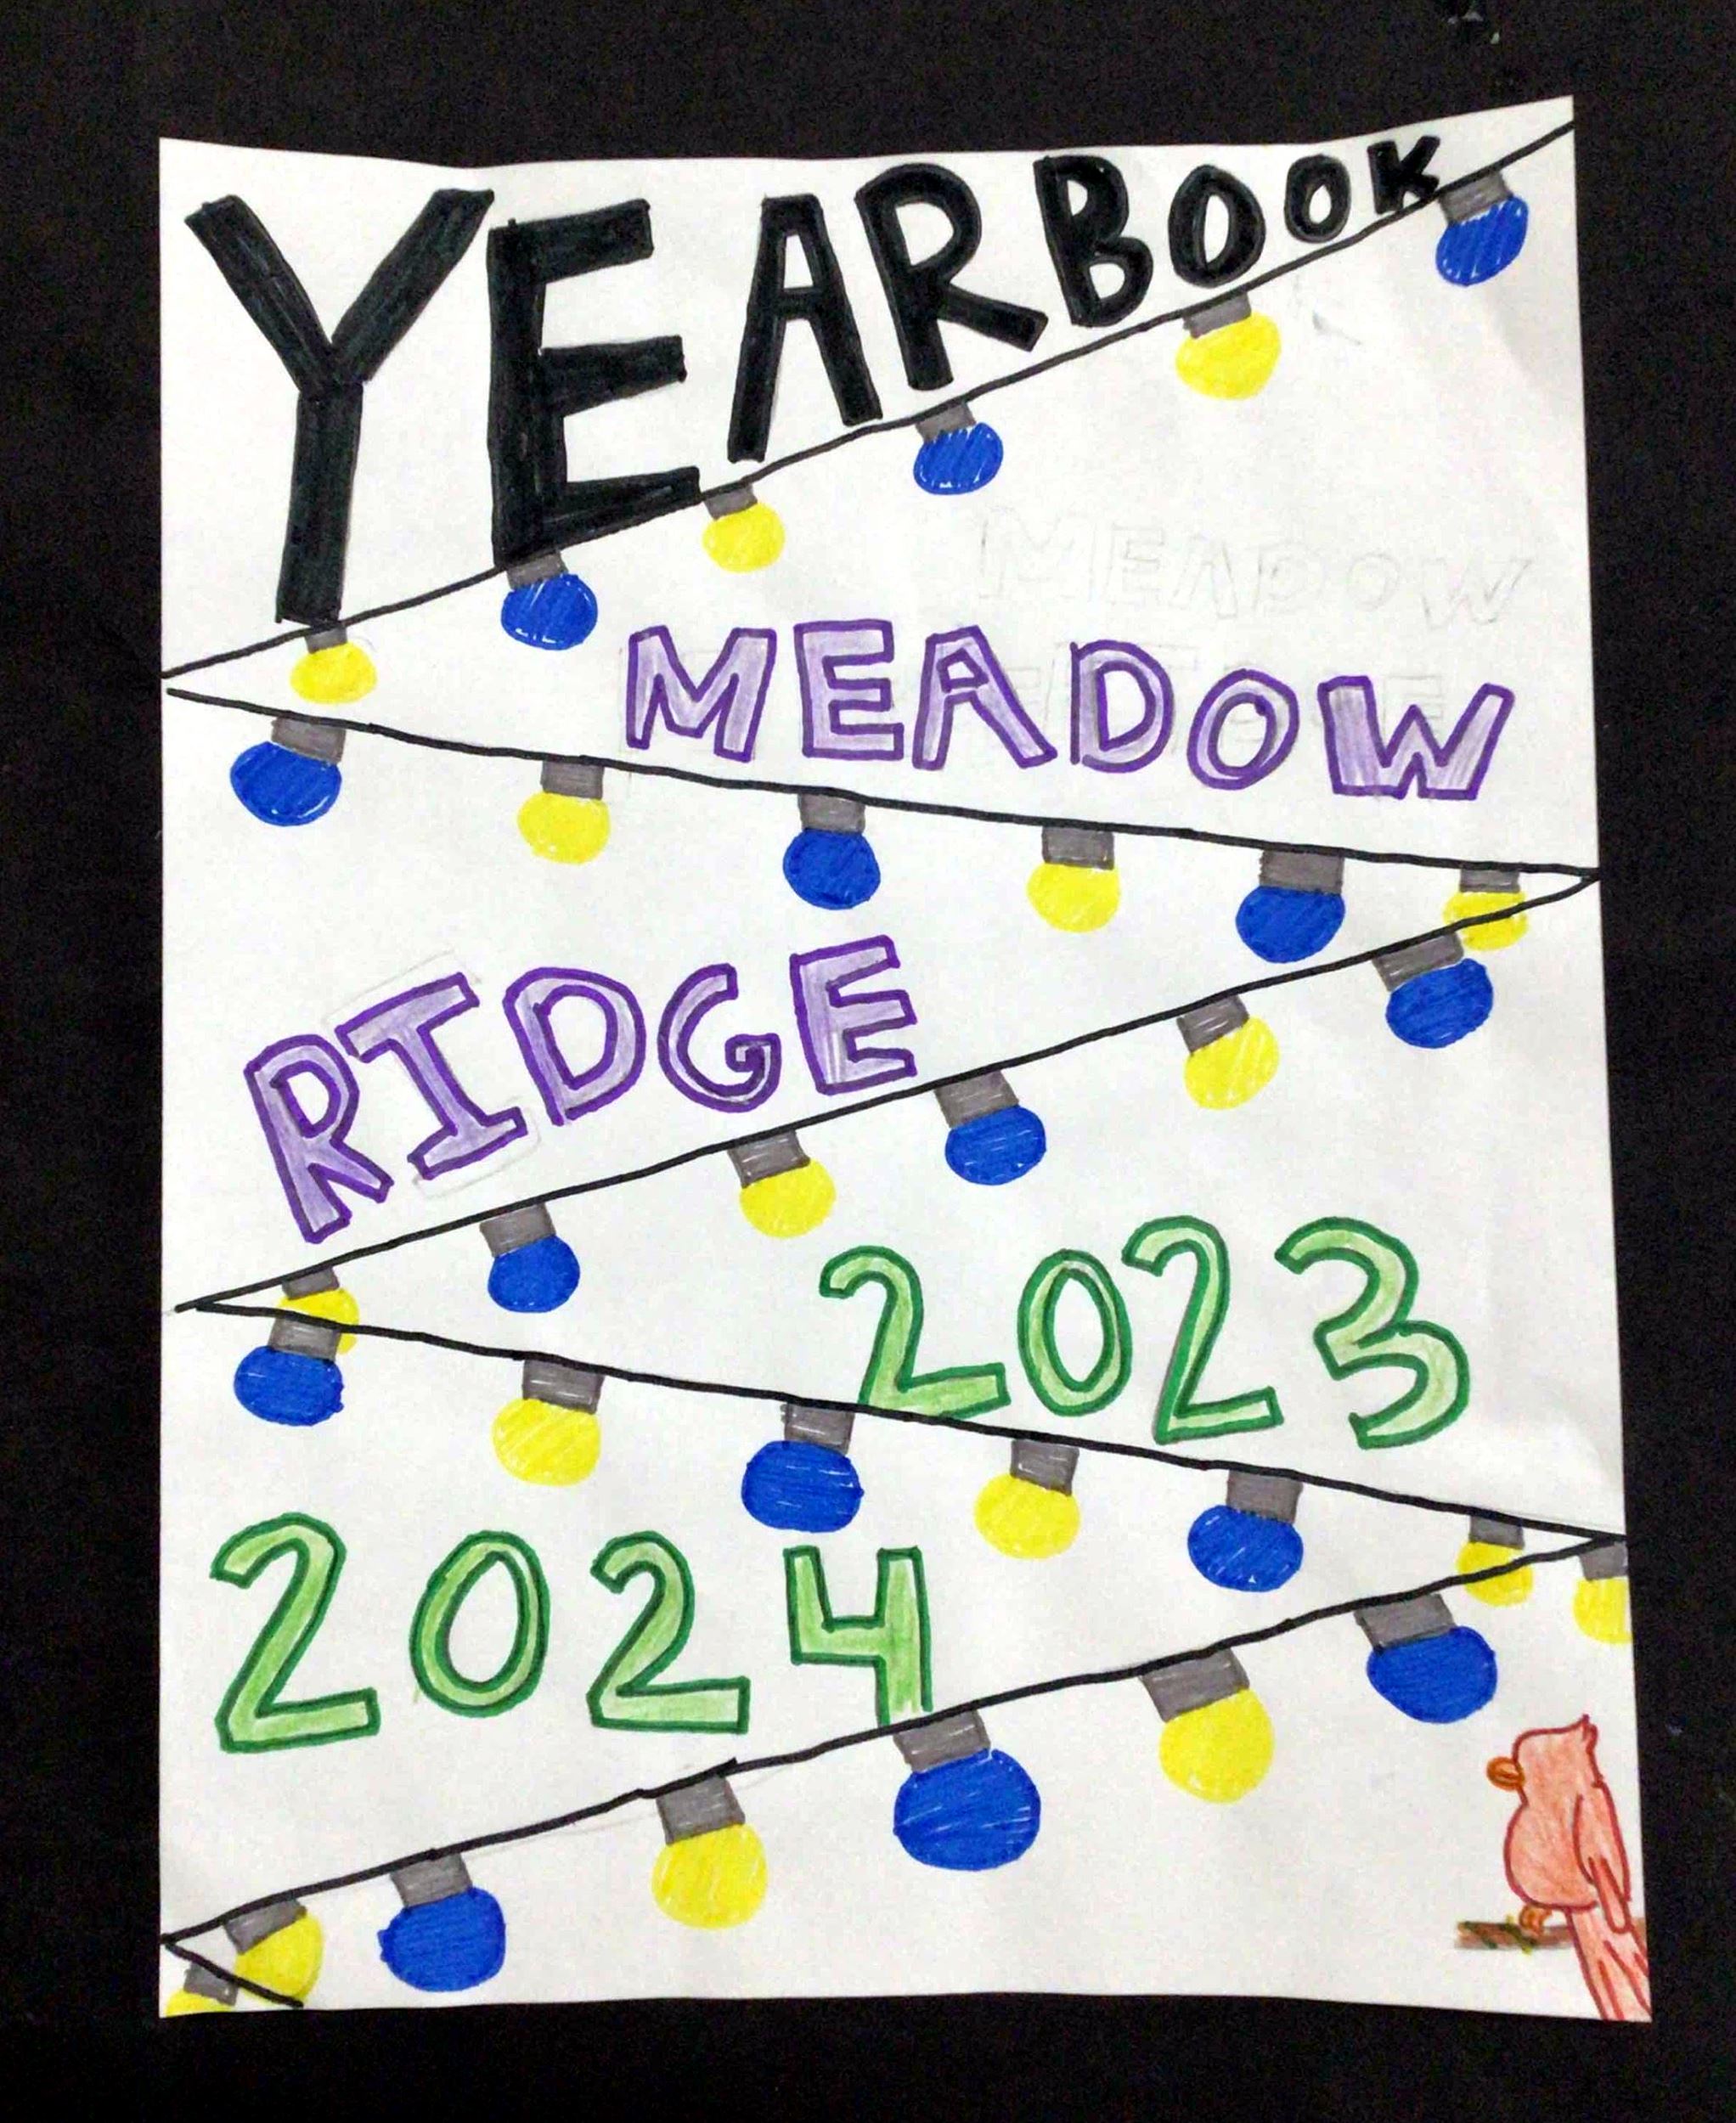 YEARBOOK
MEADOW
MEADOW
RIDGE
2023
2024